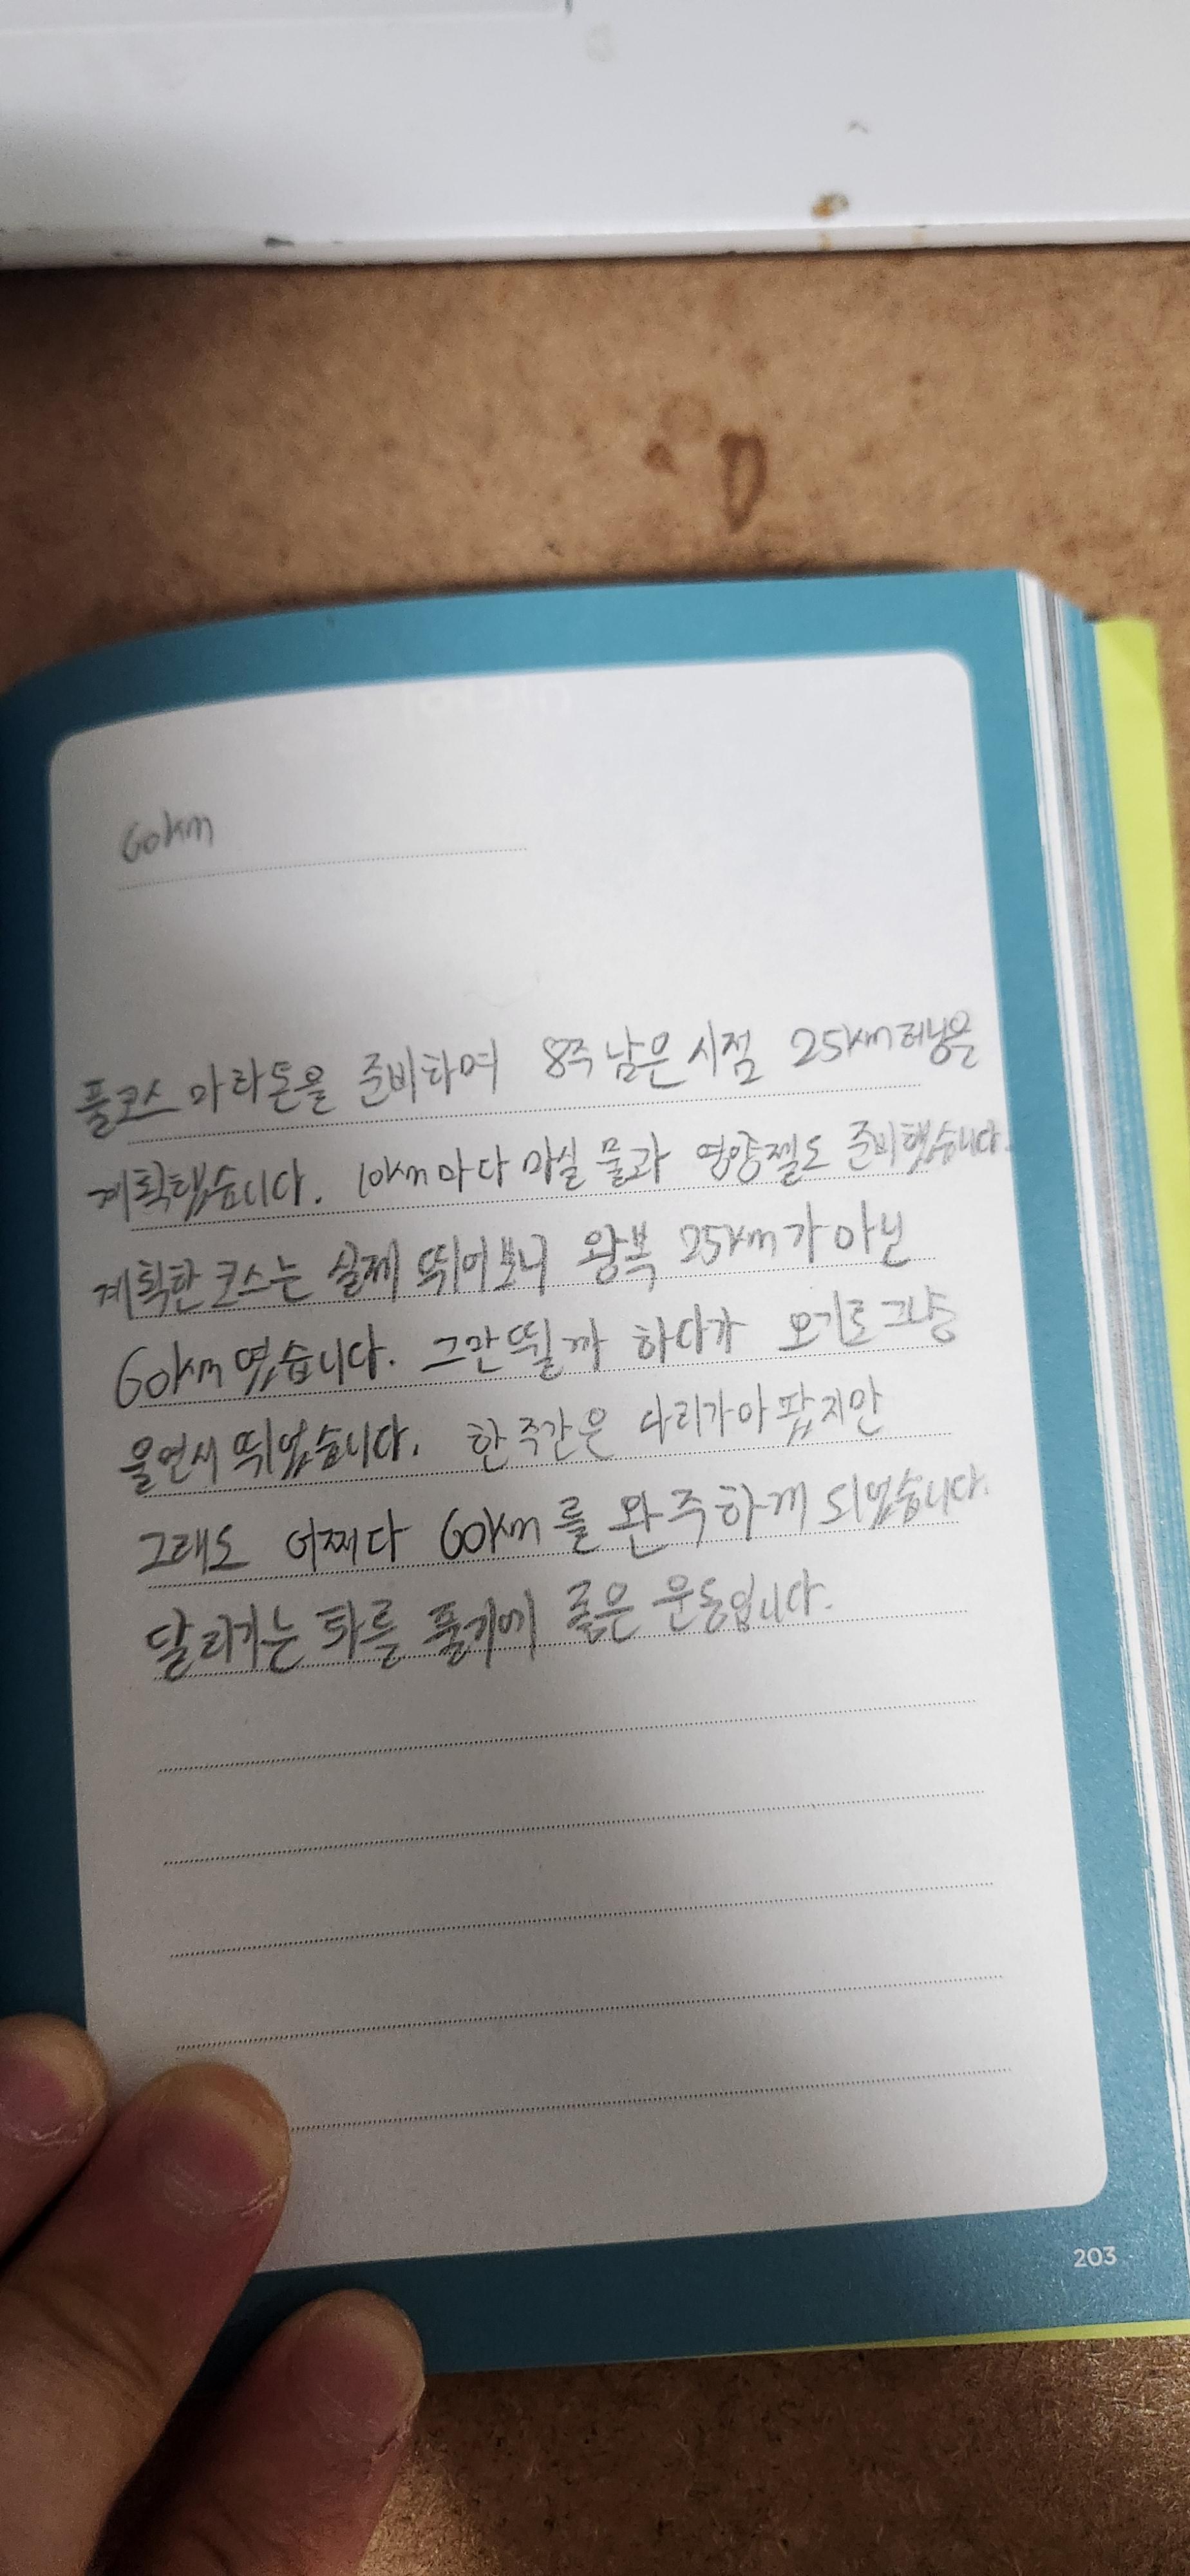 60km
풀코스 마라톤을 준비하며 8주 남은 시점 25km 러닝을
계획했습니다. 10km마다 마실 물과 영양젤도 준비했습니다.
계획한 코스는 실제 뛰어보니 왕복 25km가 아닌
60km였습니다. 그만 뛸까 하다가 오기로 그냥
울면서 뛰었습니다. 한 주간은 다리가 아팠지만
그래도 어쩌다 60km를 완주하게 되었습니다.
달리기는 화를 풀기에 좋은 운동입니다.
203